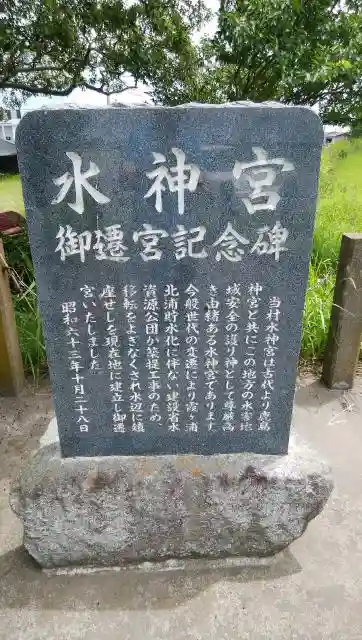 水神宮
御遷宮記念碑
当村水神宮は古代より鹿島
神宮と共にこの地方の水害地
域安全の護り神として尊厳高
き由緒ある水神宮であります。
今般世代の変遷により霞ヶ浦
北浦貯水化に伴ない建設省水
資源公団が築堤工事のため、
移転をよぎなくされ水辺に鎮
座せしを現在地に建立し御遷
宮いたしました。
昭和六十三年十月二十八日